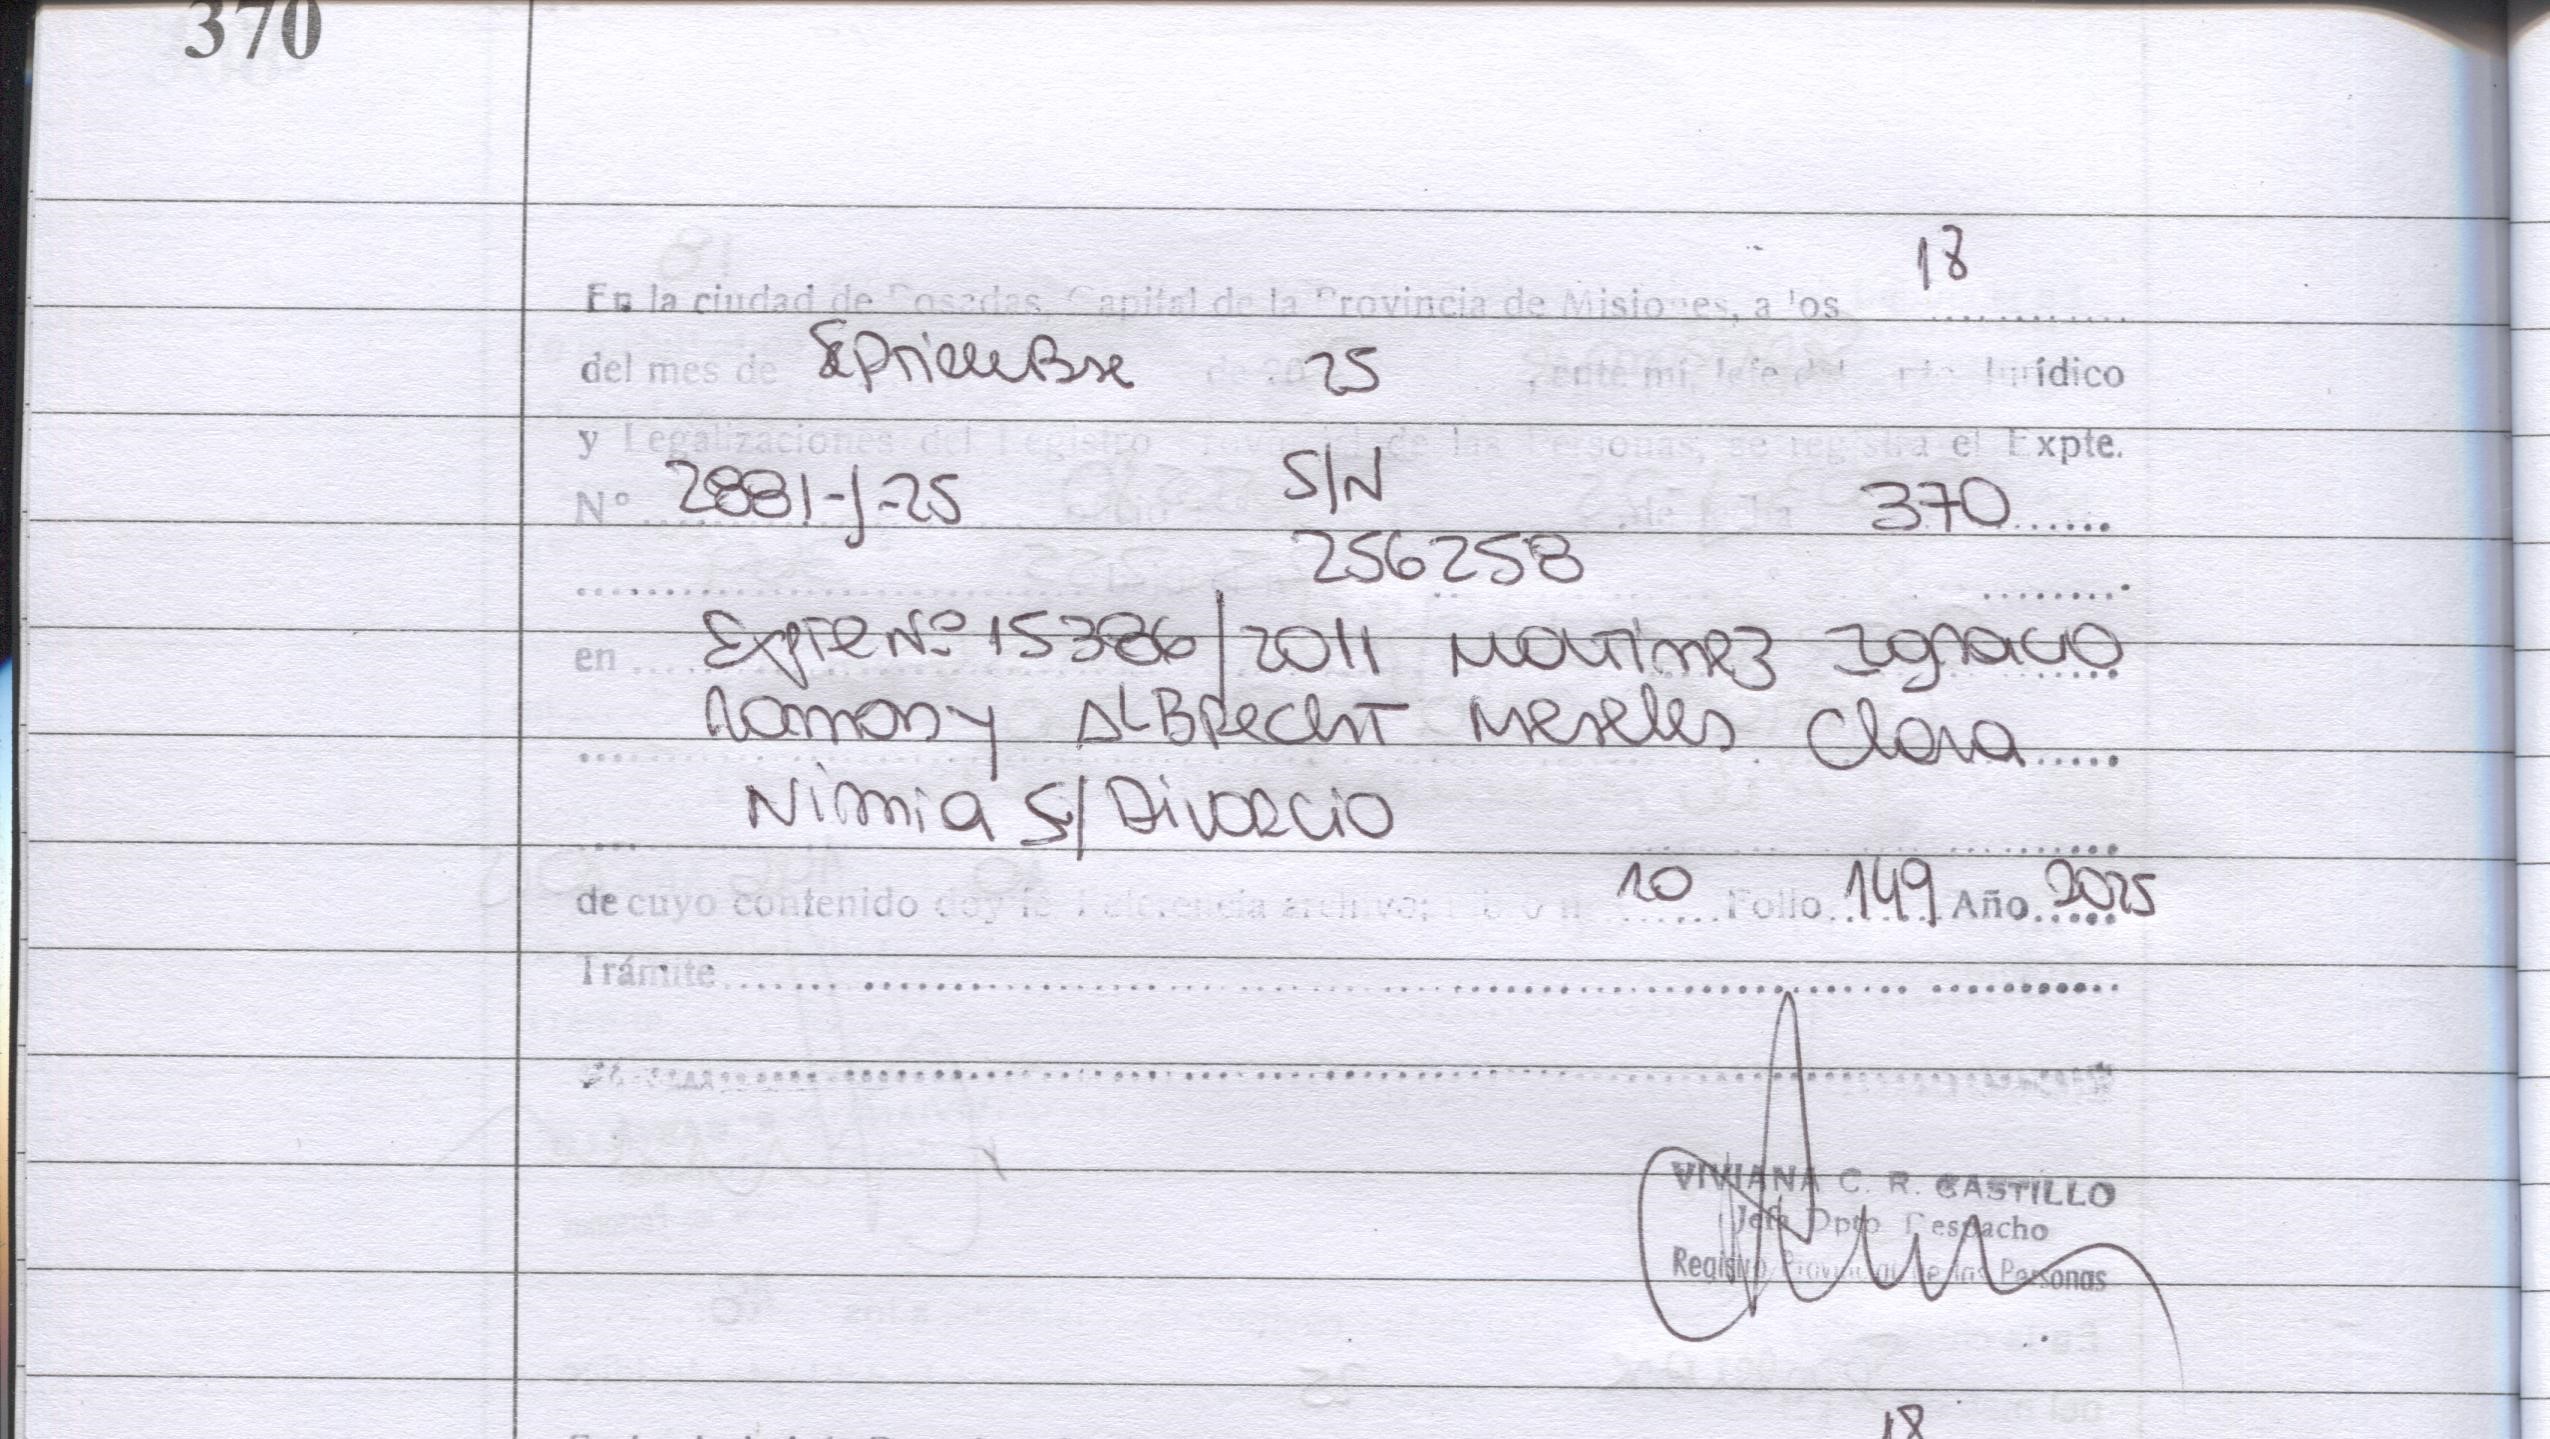 370
18
En la ciudad de Posadas, Capital de la Provincia de Misiones, a los ............
del mes de Septiembre de 20 25, ante mí, Jefe del Dpto. Jurídico
y Legalizaciones del Registro Provincial de las Personas, se registra el Expte.
Nº 2881-J-25 S/N de fecha 370
256258
en Expte Nº 15386/2011 Martinez Ignacio
Ramon y ALBRecht Mereles Clara
Nimia S/ Divorcio
de cuyo contenido doy fe. Referencia archivo: Libro n 10 Folio 149 Año 2025
Trámite
VIVIANA C. R. CASTILLO
Jefa Dpto Despacho
Registro Provincial de las Personas
18